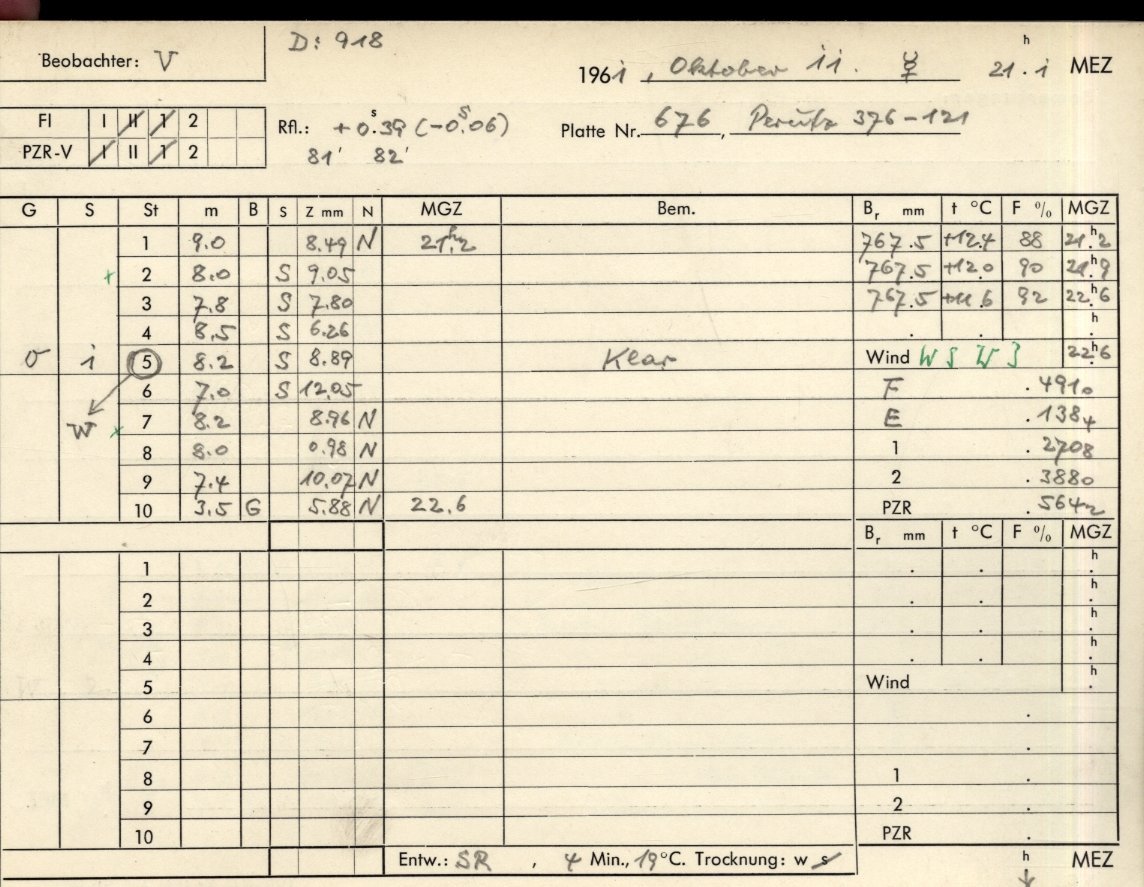 D: 918
Beobachter: V
1961, Oktober 11. ☿ 21.1 h MEZ
FI I II 1 2
PZR-V I II 1 2
Rfl.: +0.ˢ39 (-0.ˢ06)
81' 82'
Platte Nr. 676, Perutz 376-121
G S St m B S Z mm N MGZ Bem. Bᵣ mm t °C F % MGZ
1 9.0 8.49 N 21ʰ.2 767.5 +12.4 88 21.ʰ2
+ 2 8.0 S 9.05 767.5 +12.0 90 21.ʰ9
3 7.8 S 7.80 767.5 +11.6 92 22.ʰ6
4 8.5 S 6.26 . . h .
σ i 5 8.2 S 8.89 Klar Wind WSW 3 22.ʰ6
6 7.0 S 12.05 F .4910
W × 7 8.2 8.96 N E .1384
8 8.0 0.98 N 1 .2708
9 7.4 10.07 N 2 .3880
10 3.5 G 5.88 N 22.6 PZR .5642
Bᵣ mm t °C F % MGZ
1 . . h .
2 . . h .
3 . . h .
4 . . h .
5 Wind h .
6 .
7 .
8 1 .
9 2 .
10 PZR .
Entw.: SR , 4 Min., 19°C. Trocknung: w s h MEZ